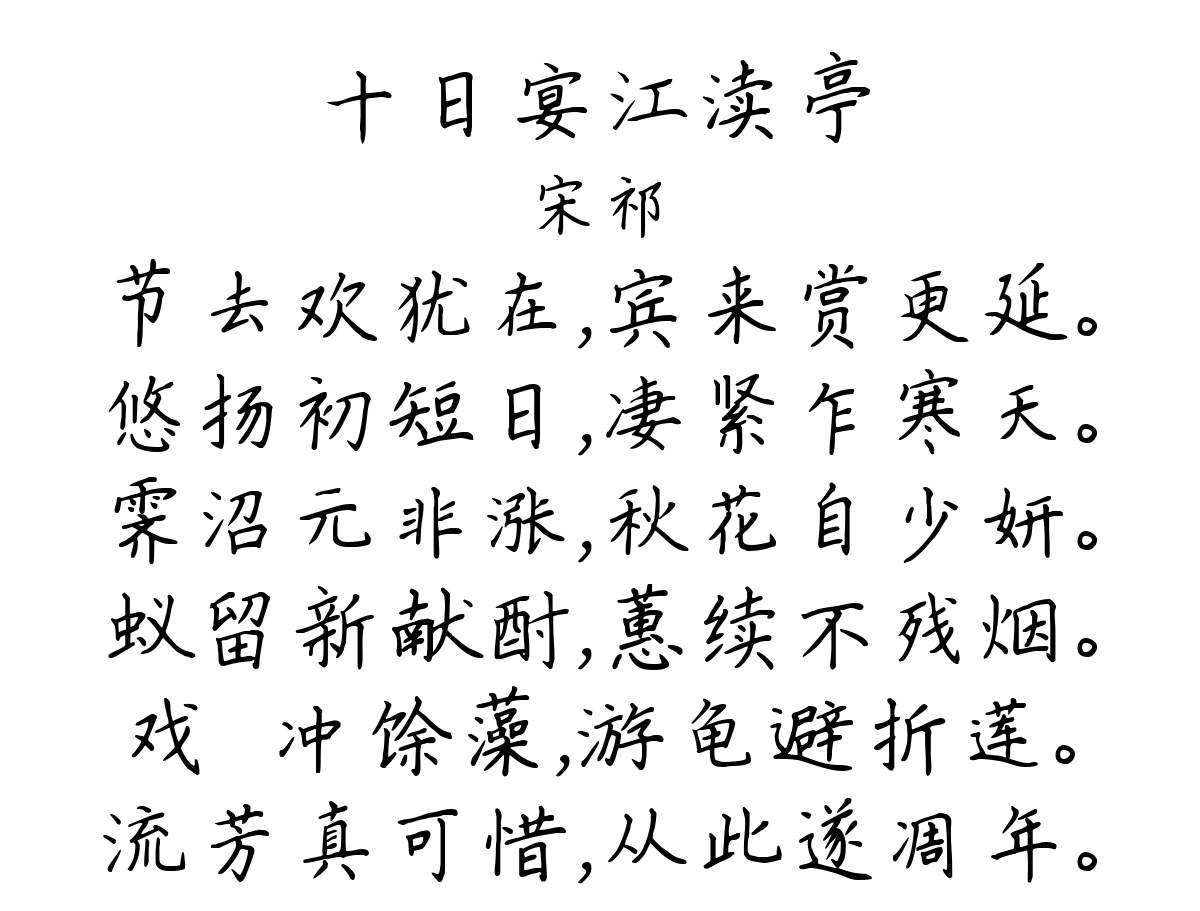 十日宴江渎亭
宋祁
节去欢犹在,宾来赏更延。
悠扬初短日,凄紧乍寒天。
霁沼元非涨,秋花自少妍。
蚁留新献酎,蕙续不残烟。
戏 冲馀藻,游龟避折莲。
流芳真可惜,从此遂凋年。